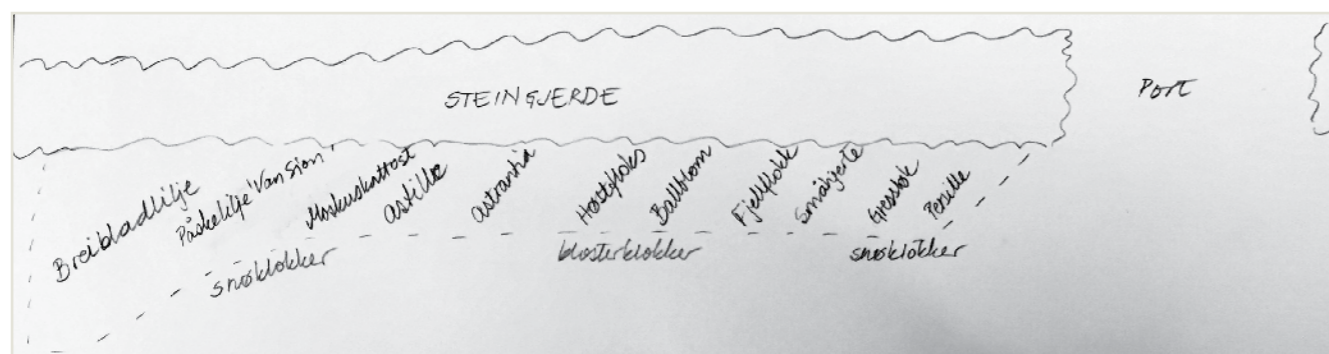 STEINGJERDE
Port
Breibladlilje
Påskelilje 'Van Sion'
Moskuskattost
Astilbe
Astrantia
Høstfloks
Ballblom
Fjellflokk
Småhjerte
Gressløk
Persille
snøklokker
klosterklokker
snøklokker